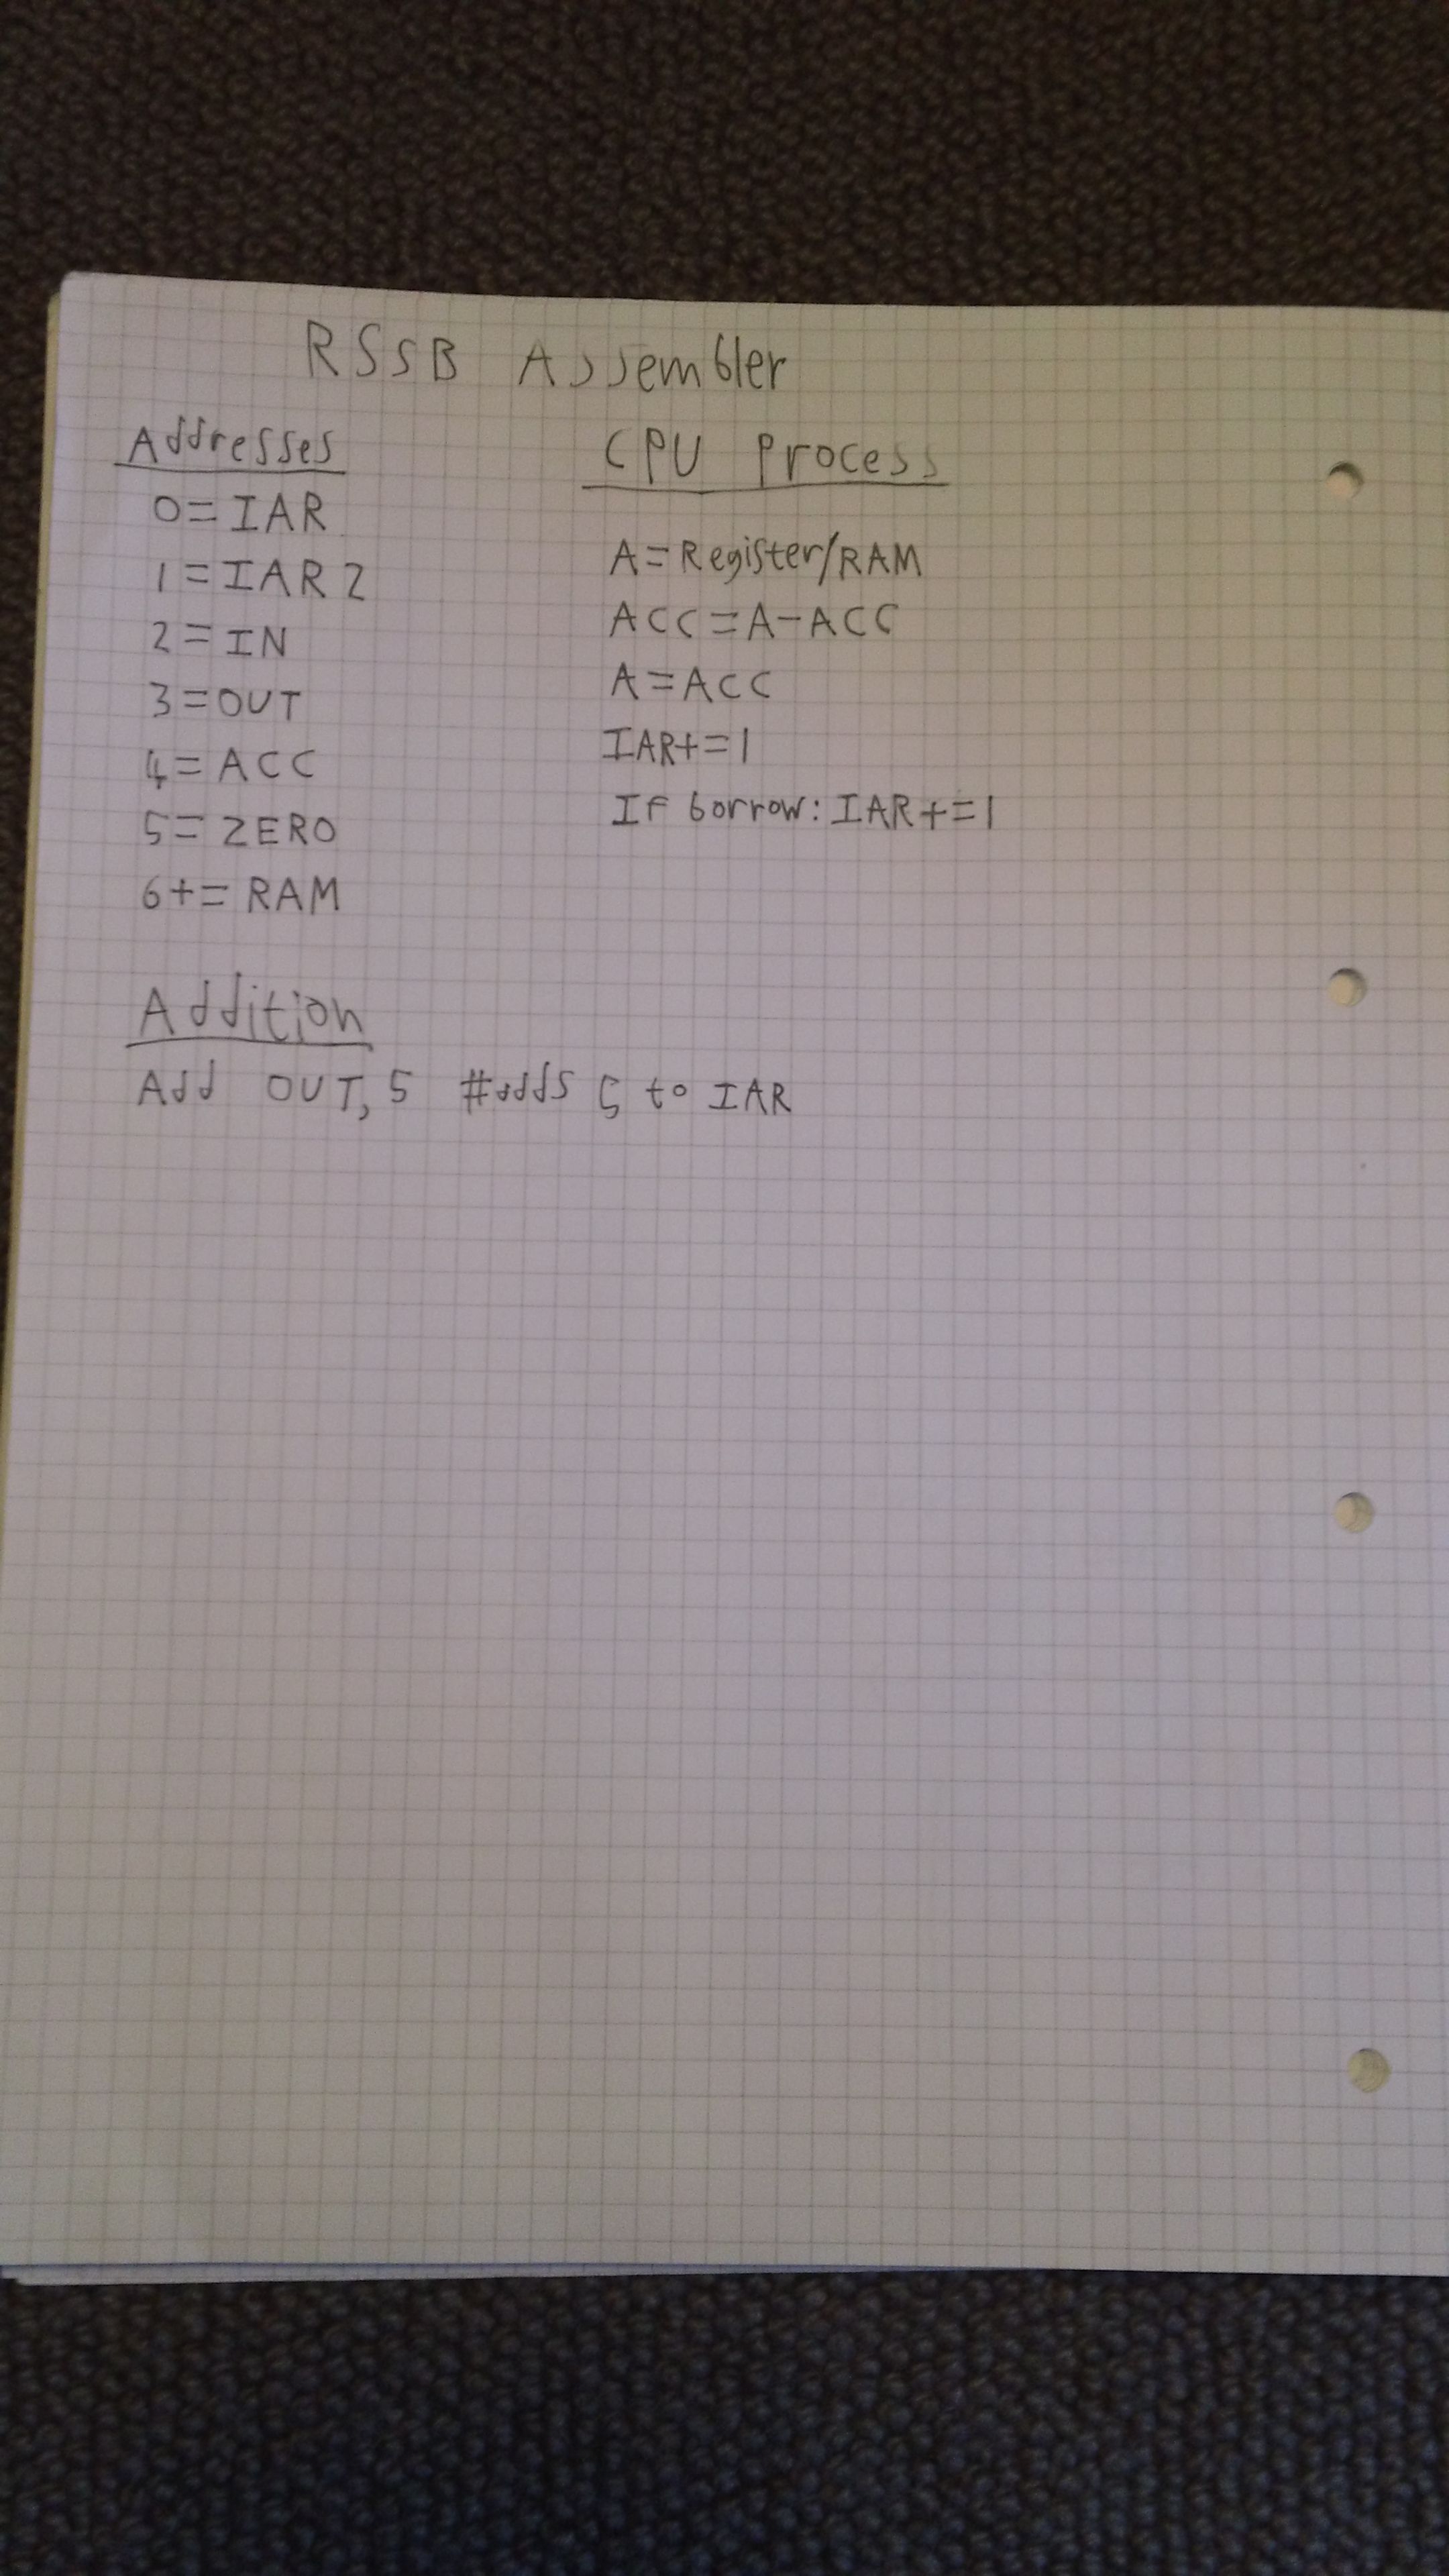 RSSB Assembler
Addresses
0=IAR
1=IAR2
2=IN
3=OUT
4=ACC
5=ZERO
6+=RAM
CPU Process
A=Register/RAM
ACC=A-ACC
A=ACC
IAR+=1
If borrow: IAR+=1
Addition
Add OUT, 5 #adds 5 to IAR